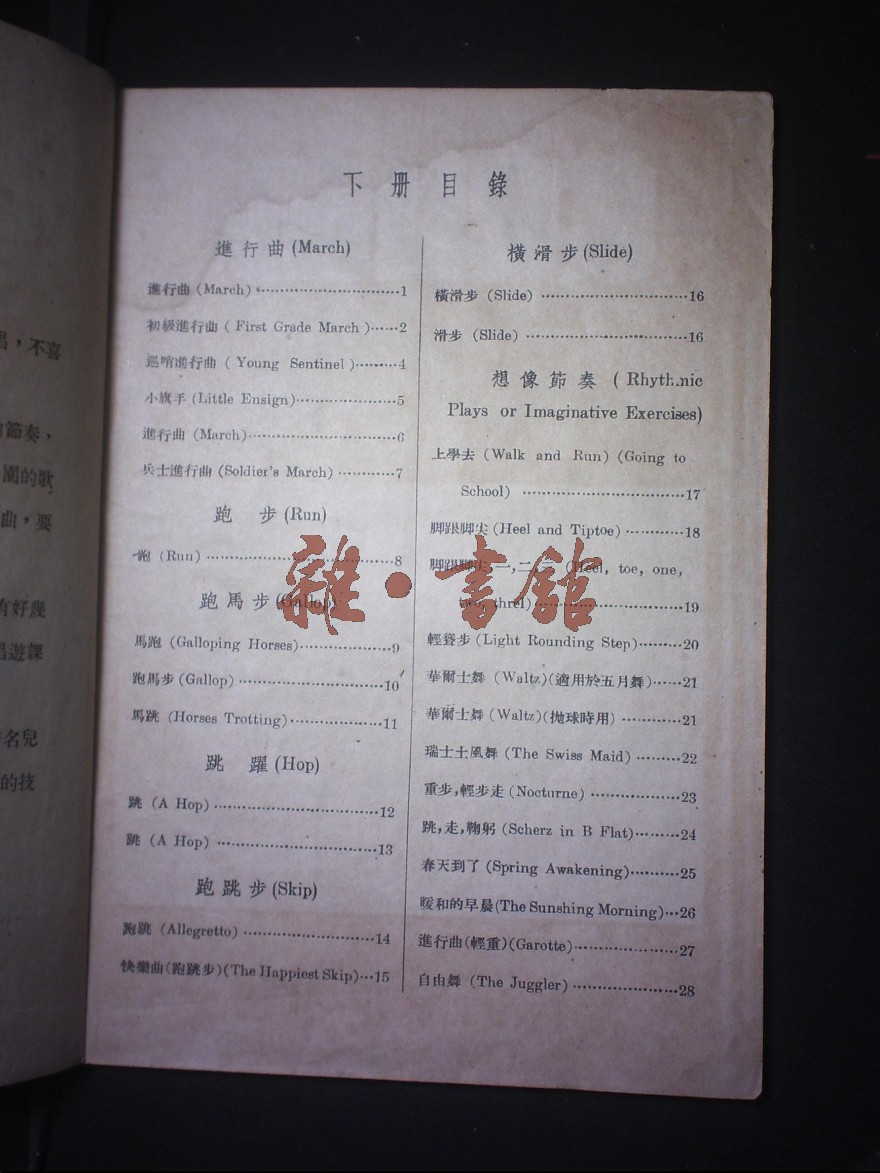 唱，不喜
節奏，
園的歌
曲，要
有好幾
唱遊課
名兒
的技
下册目錄
進行曲 (March)
進行曲 (March) ………………………1
初級進行曲 ( First Grade March )……2
巡哨進行曲 ( Young Sentinel )………4
小旗手 (Little Ensign)………………5
進行曲 (March)………………………6
兵士進行曲 (Soldier's March) …………7
跑步 (Run)
跑 (Run) ………………………………8
跑馬步 (Gallop)
馬跑 (Galloping Horses)………………9
跑馬步 (Gallop) ………………………10
馬跳 (Horses Trotting)………………11
跳躍 (Hop)
跳 (A Hop) ……………………………12
跳 (A Hop) ……………………………13
跑跳步 (Skip)
跑跳 (Allegretto) ……………………14
快樂曲(跑跳步)(The Happiest Skip)…15
橫滑步 (Slide)
橫滑步 (Slide) ………………………16
滑步 (Slide) …………………………16
想像節奏 ( Rhythmic
Plays or Imaginative Exercises)
上學去 (Walk and Run) (Going to
School) …………………………17
脚跟脚尖 (Heel and Tiptoe) …………18
脚跟脚尖,一,二,三 (Heel, toe, one,
two, threl)………………………19
輕聳步 (Light Rounding Step)………20
華爾士舞 (Waltz)(適用於五月舞)……21
華爾士舞 (Waltz)(抛球時用) …………21
瑞士土風舞 (The Swiss Maid) ………22
重步,輕步走 (Nocturne) ………………23
跳,走,鞠躬 (Scherz in B Flat)………24
春天到了 (Spring Awakening)…………25
暖和的早晨(The Sunshing Morning)…26
進行曲(輕重)(Garotte)………………27
自由舞 (The Juggler) …………………28
雜·書館